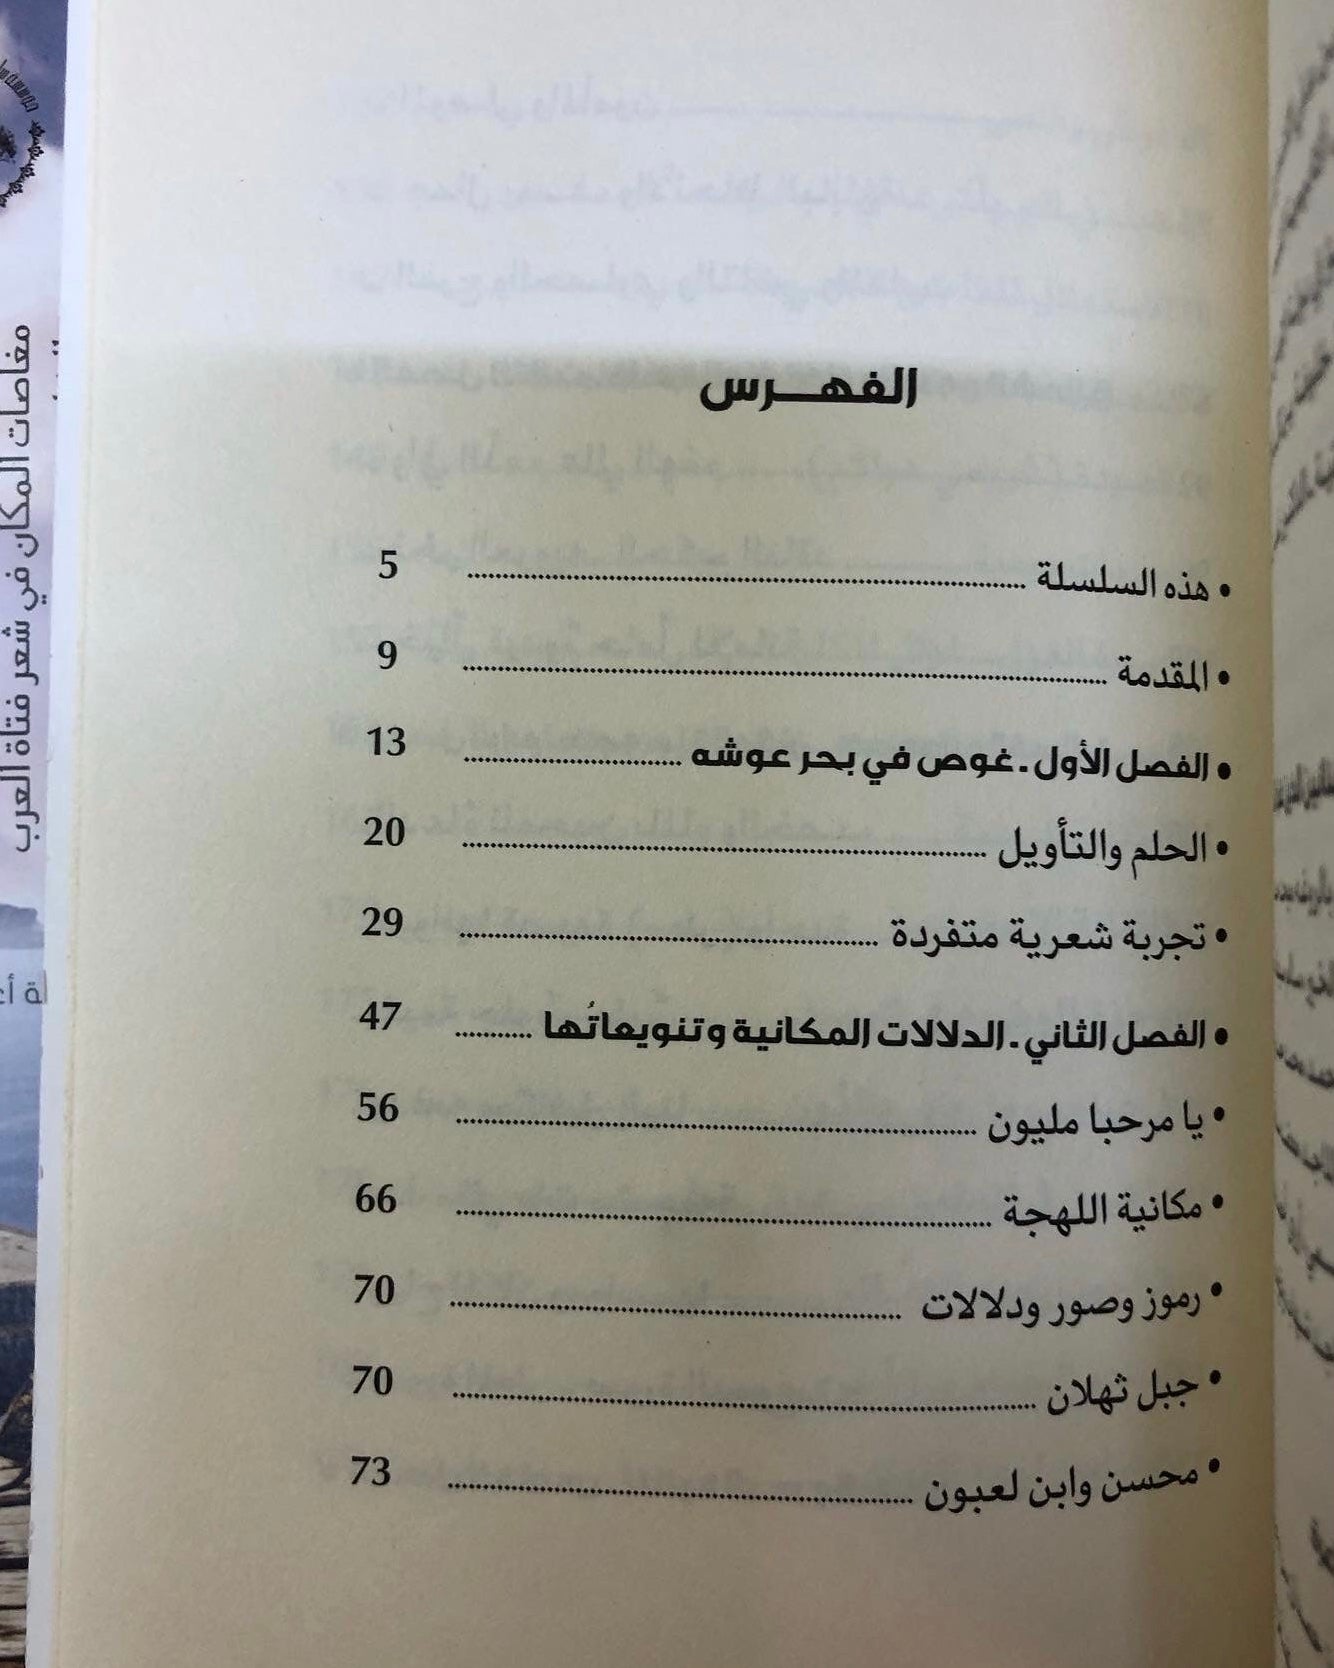 الفهـــرس
• هذه السلسلة ........................ 5
• المقدمة ........................ 9
• الفصل الأول . غوص في بحر عوشه ........................ 13
• الحلم والتأويل ........................ 20
• تجربة شعرية متفردة ........................ 29
• الفصل الثاني . الدلالات المكانية وتنويعاتُها ........... 47
• يا مرحبا مليون ........................ 56
• مكانية اللهجة ........................ 66
• رموز وصور ودلالات ........................ 70
• جبل ثهلان ........................ 70
• محسن وابن لعبون ........................ 73
مغاصات المكان في شعر فتاة العرب